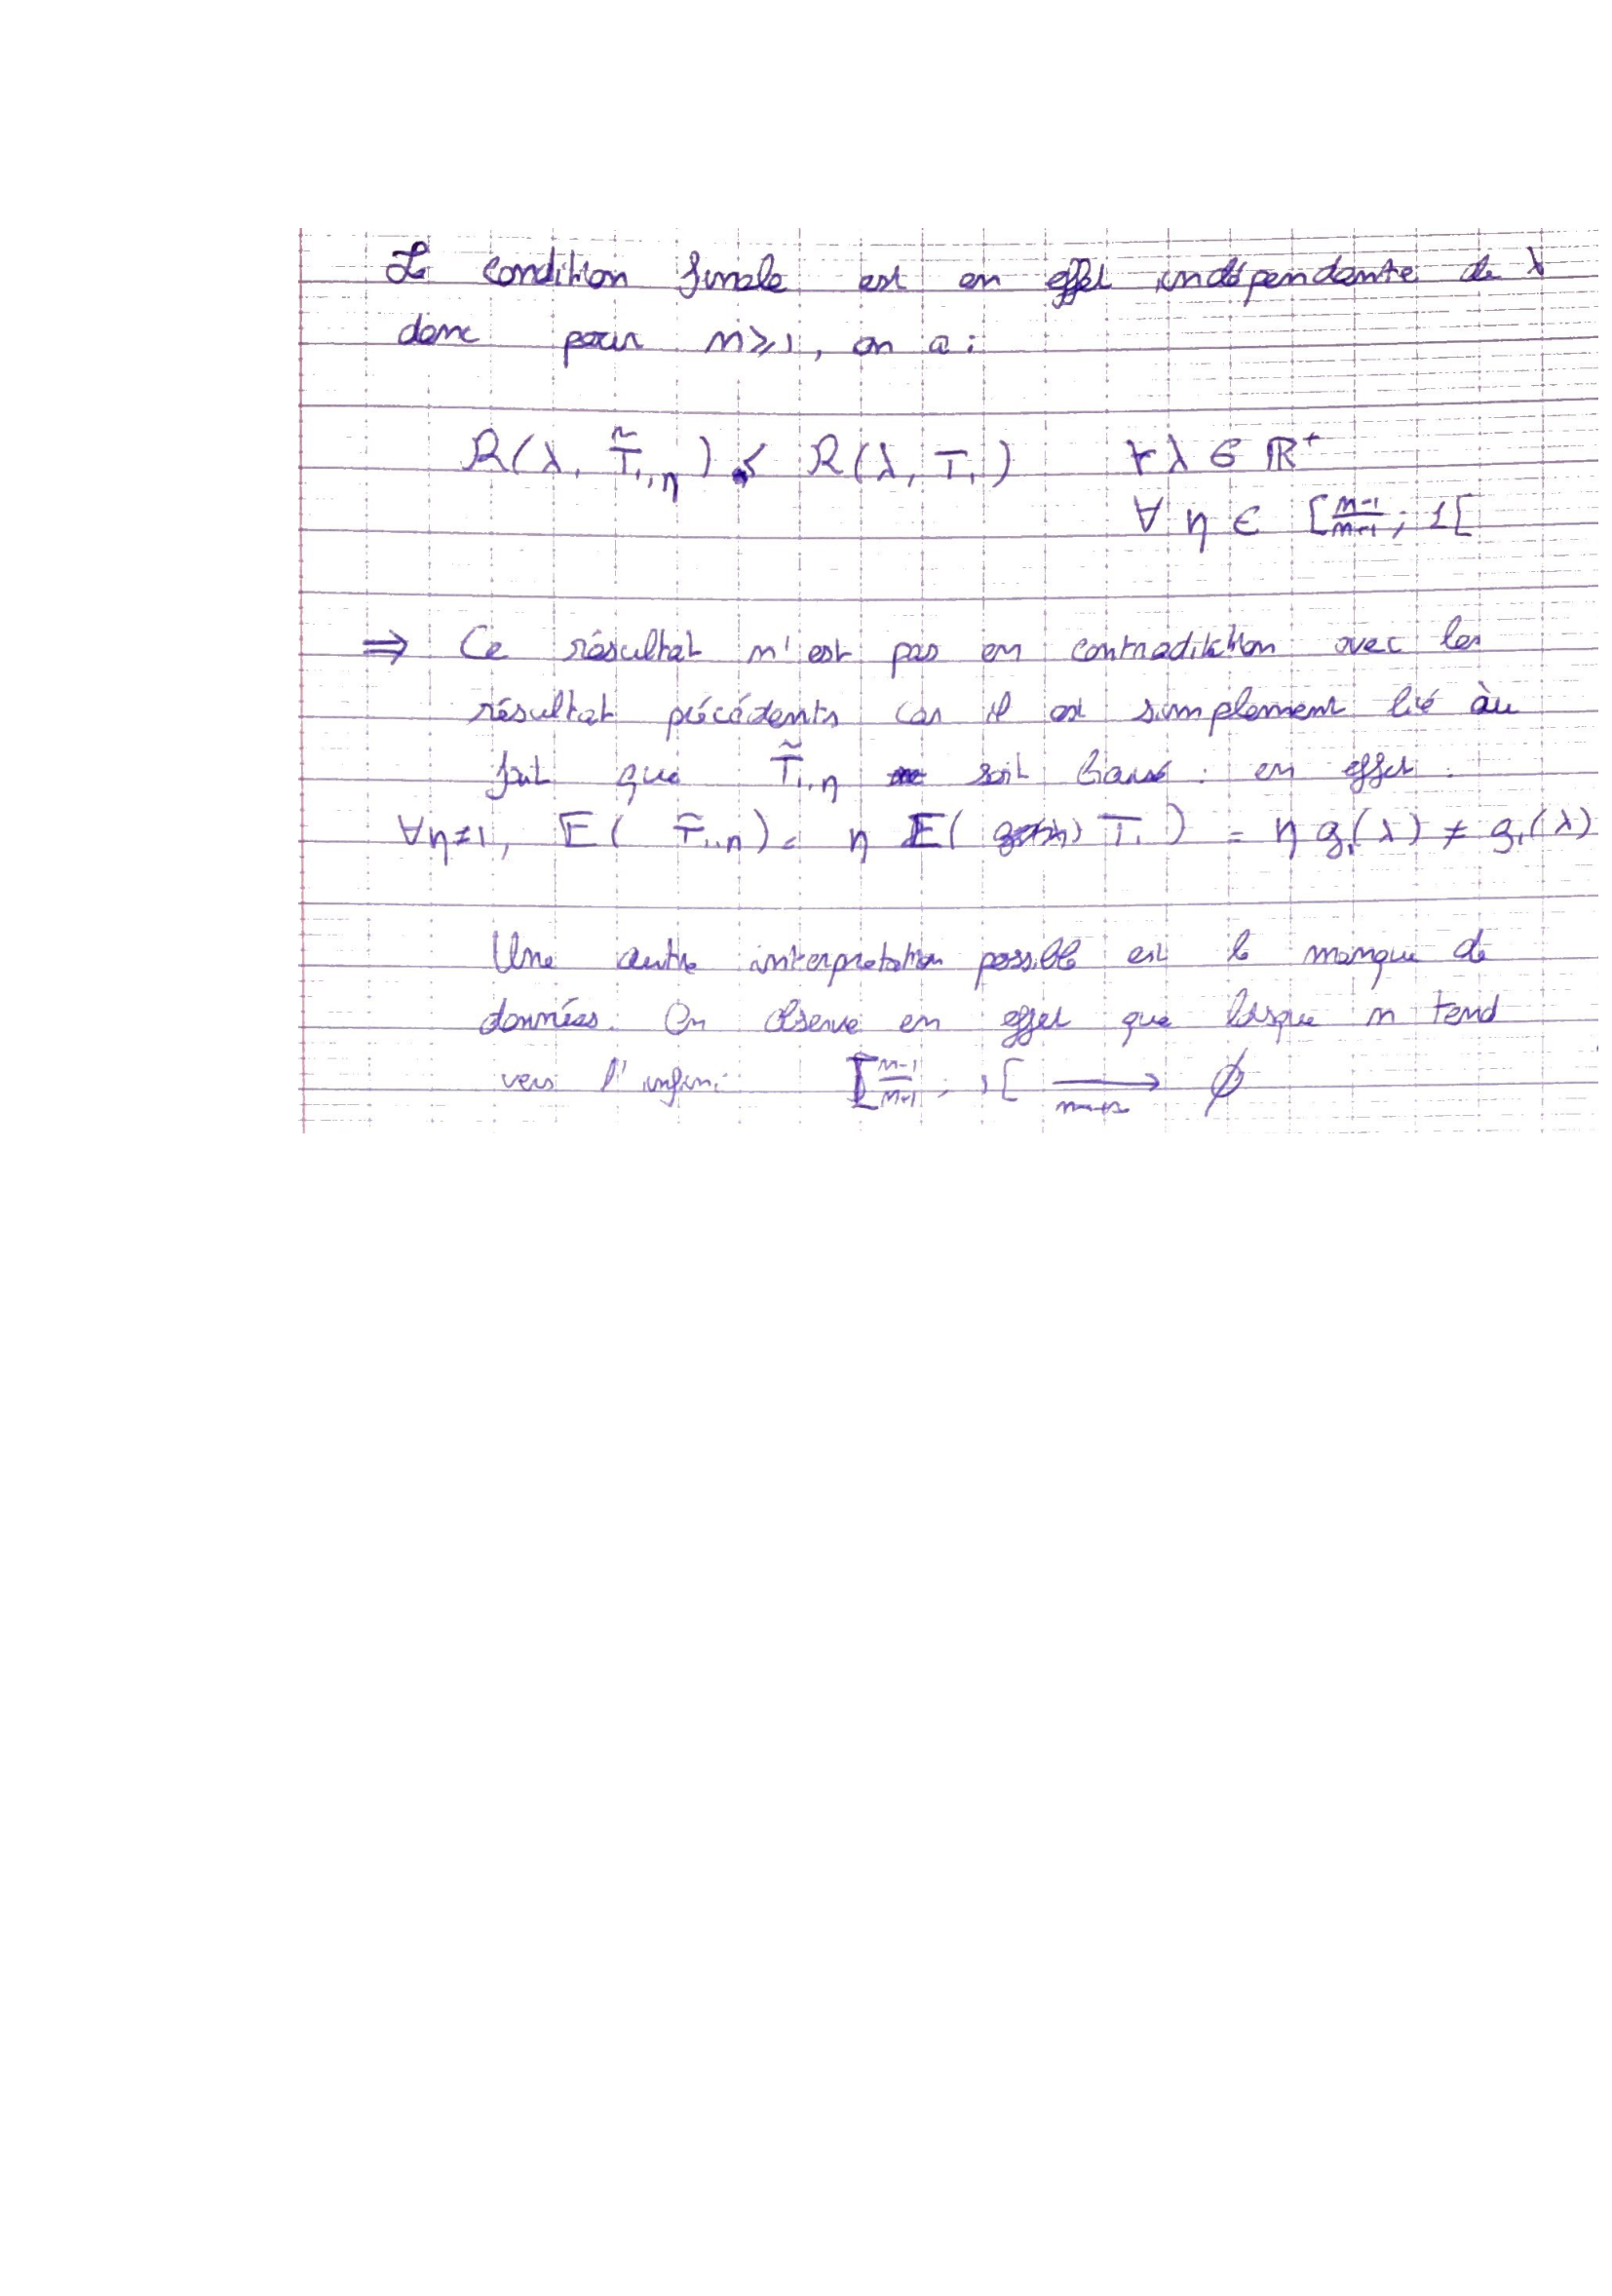 La condition finale est en effet indépendante de λ
donc pour n ⩾ 1, on a :
R(λ, T̃₁,η) ⩽ R(λ, T₁) ∀ λ ∈ ℝ⁺
∀ η ∈ [n-1/n+1 ; 1[
⇒ Ce résultat n'est pas en contradiktion avec les
résultat précédents car il est simplement lié àu
fait que T̃₁,η soit biaisé : en effet :
∀η≠1, E( T̃₁,η) = η E( T₁ ) = η g₁(λ) ≠ g₁(λ)
Une autre interpretation possible est le manque de
données. On observe en effet que lorsque n tend
vers l'infini [n-1/n+1 ; 1[ ⟶ n→+∞ ∅